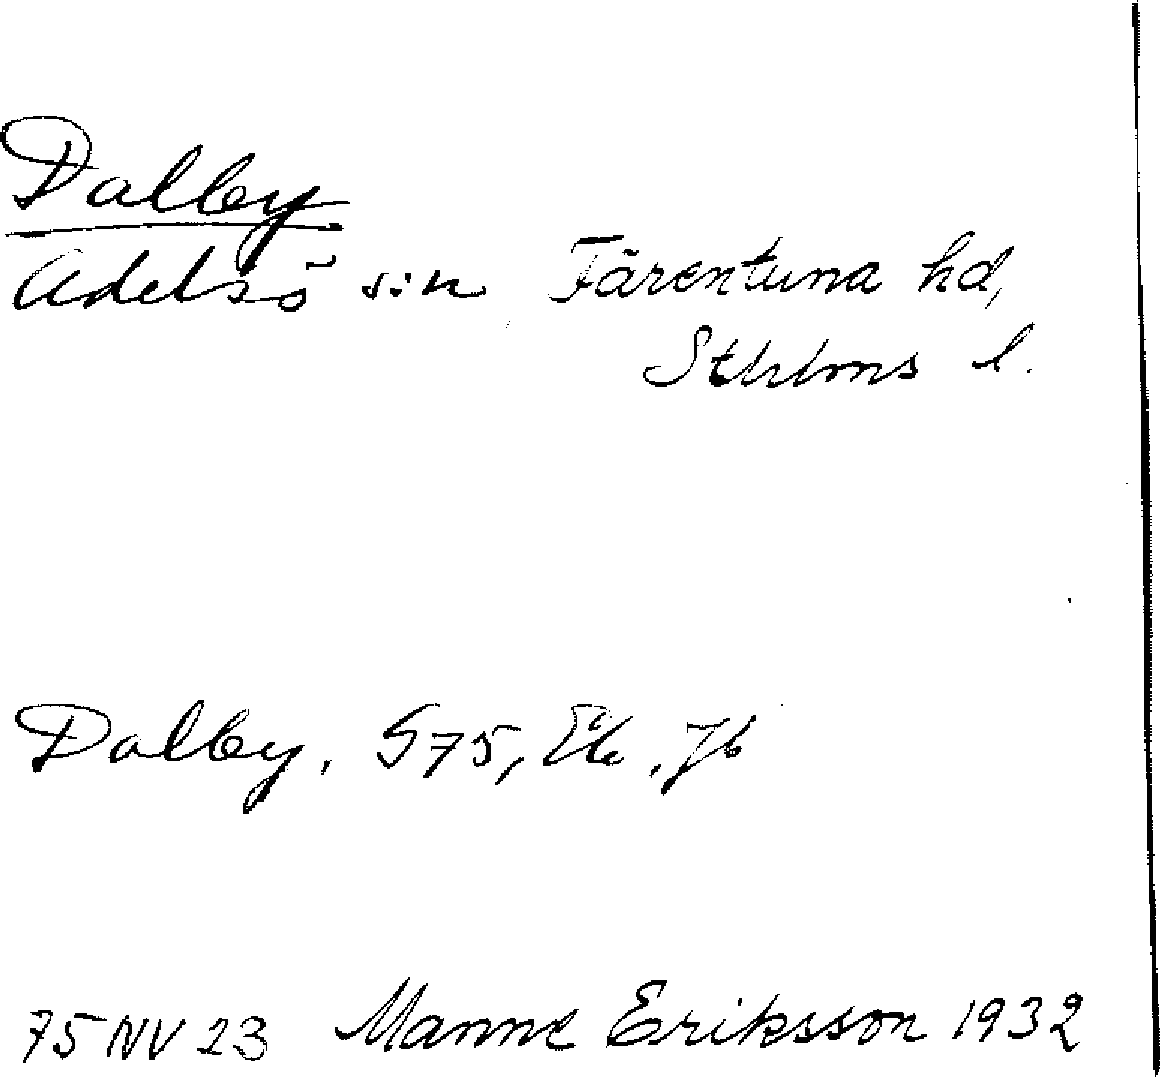 Dalby
Adelsö s:n Färentuna hd,
Sthlms l.
Dalby, S75, Ek, Jb
75 NV 23 Manne Eriksson 1932